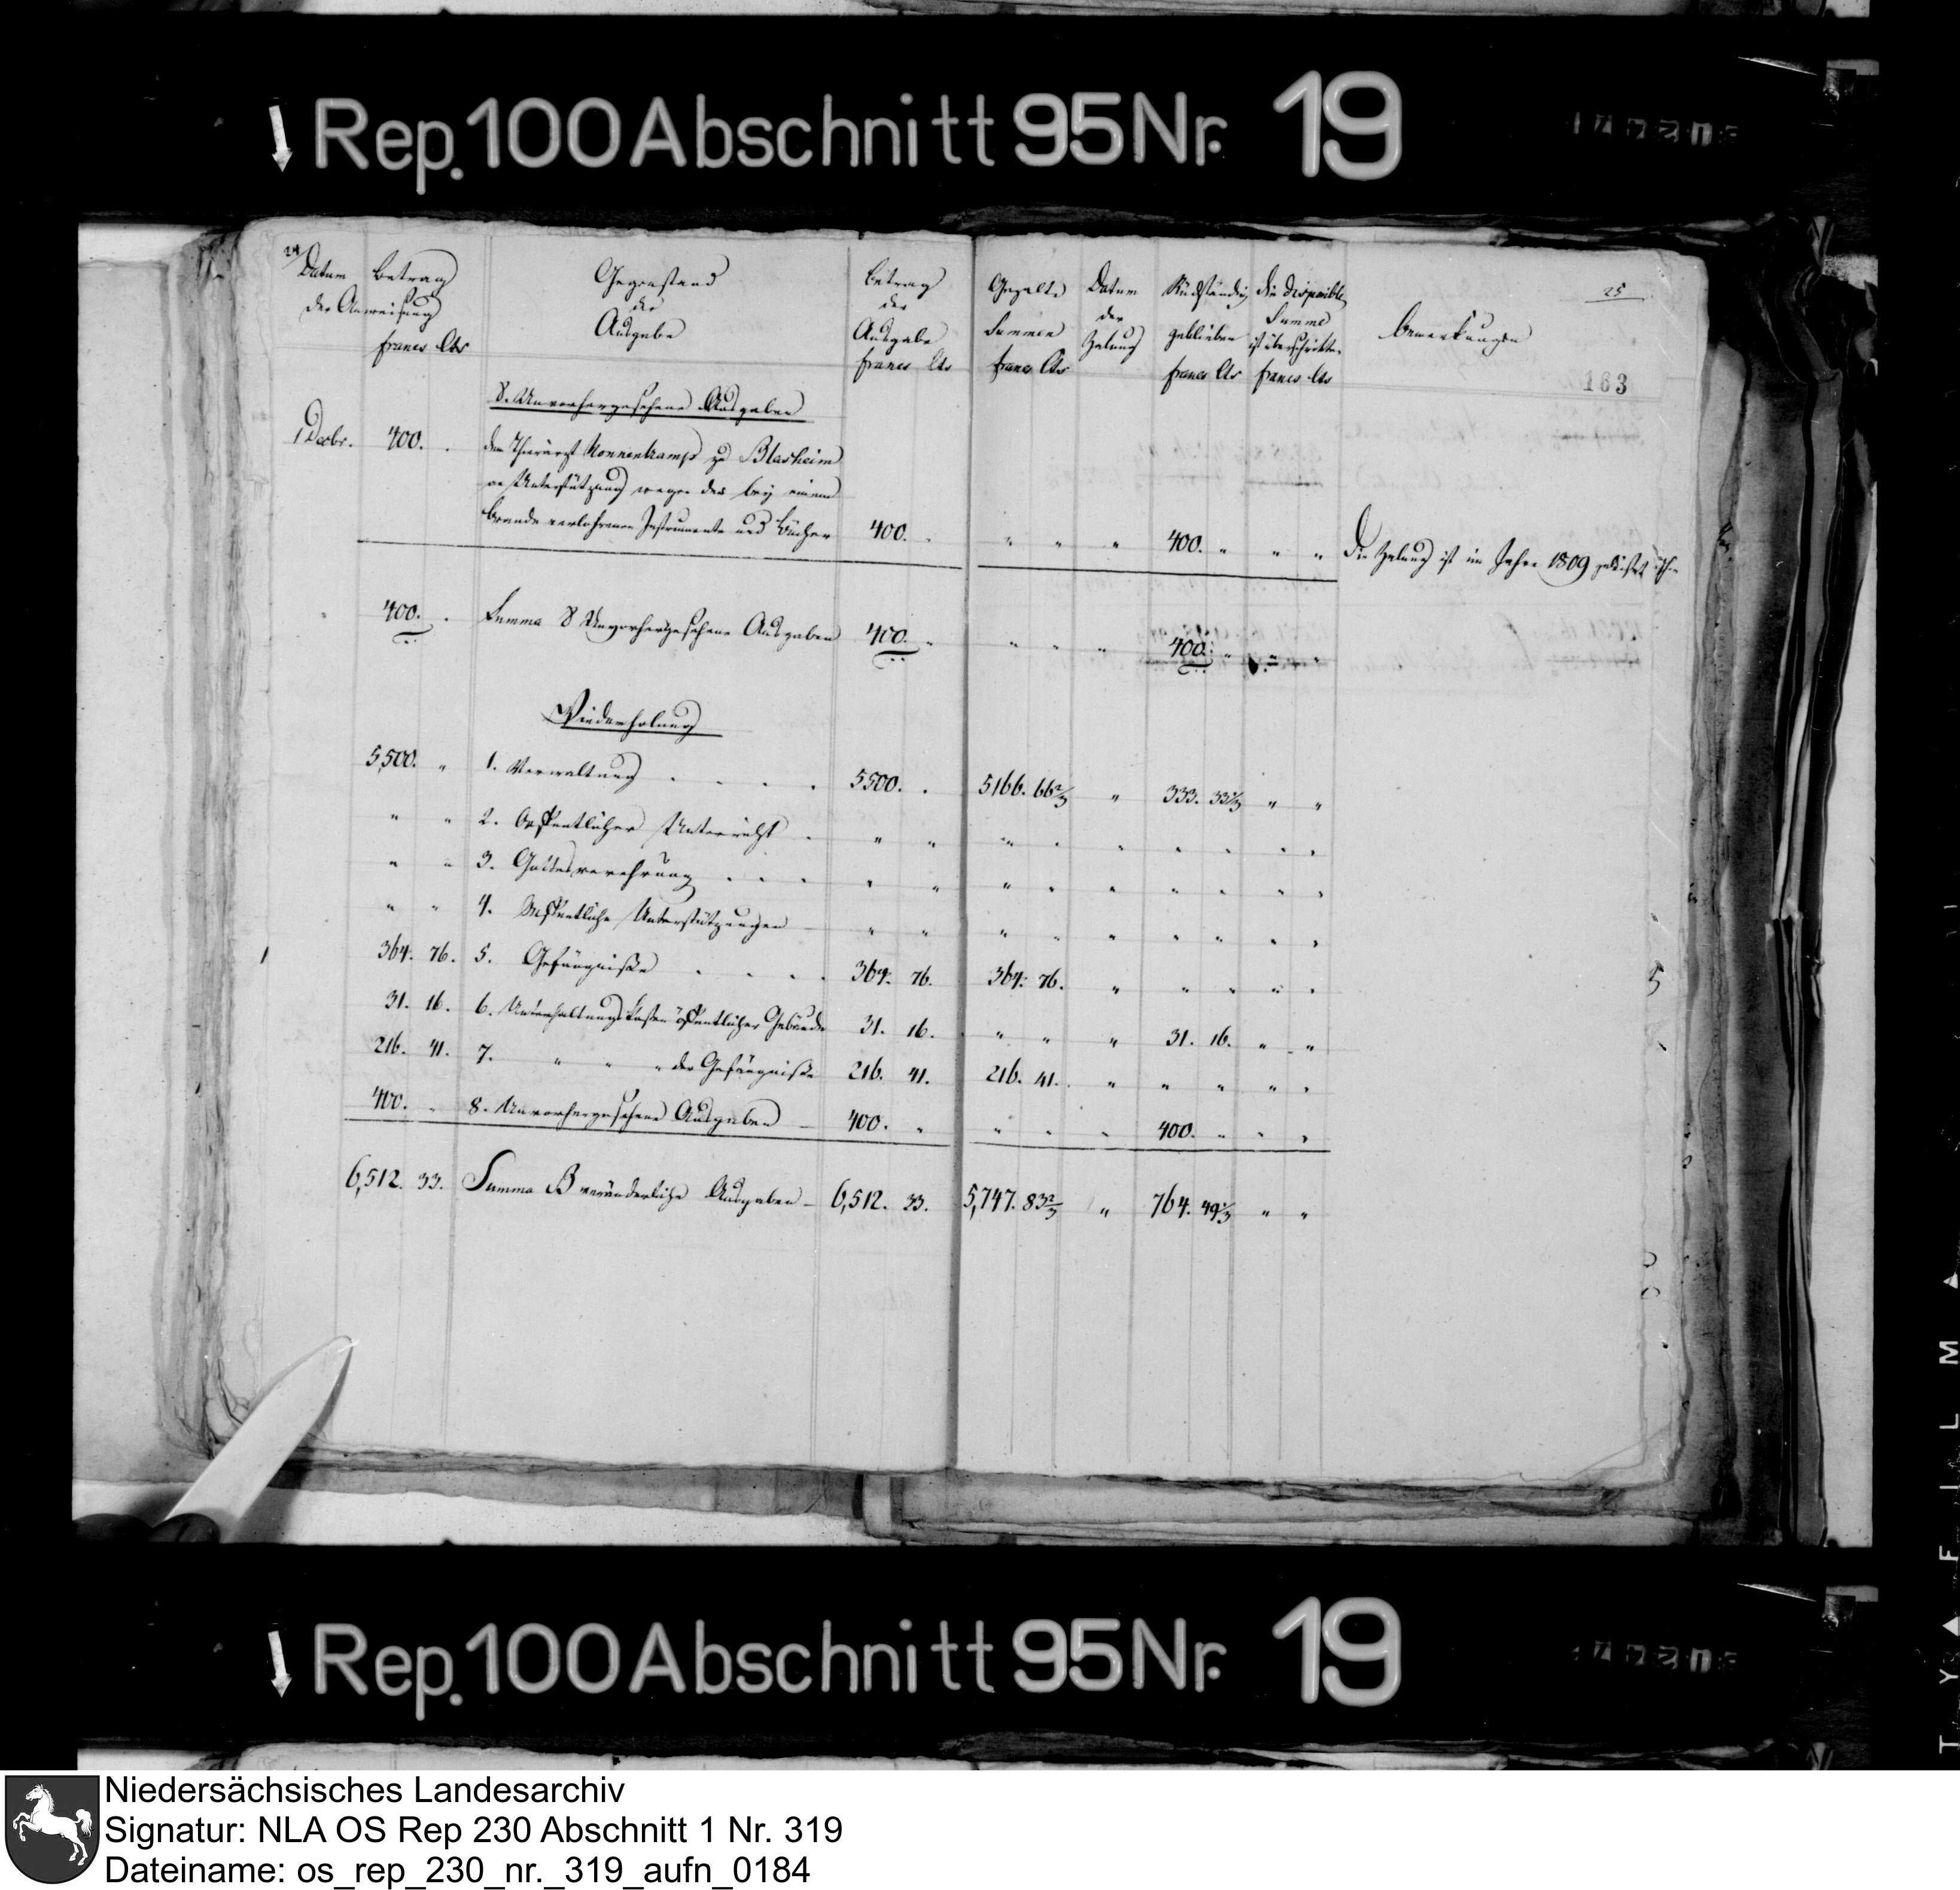 Rep. 100 Abschnitt 95 Nr. 19
24
Datum Betrag
der Anweisung
francs Cts
Gegenstand
der
Ausgabe
Betrag
der
Ausgabe
francs Cts
Gezalte
Summen
francs Cts
Datum
der
Zalung
Rückständig
geblieben
francs Cts
Die disponible
Summe
ist überschritten
francs Cts
Bemerkungen
25
163
8. Unvorhergesehene Ausgaben
1 Decbr. 400. . dem Thierarzt Nonnenkamp zu Blasheim
Unterstützung wegen der bey einem
Brande verlohrenen Instrumente und Bücher 400. . " " " 400. " " " Die Zalung ist im Jahre 1809 geleistet
400. . Summa 8 Unvorhergesehene Ausgaben 400. " " " " 400. " " "
Wiederholung
5,500. " 1. Verwaltung . . . . 5500. . 5166. 66 2/3 " 333. 33 1/3 " "
" " 2. Oeffentlicher Unterricht . " " " " " " " " "
" " 3. Gottesverehrung . . . " " " " " " " " "
" " 4. Oeffentliche Unterstützungen " " " " " " " " "
364. 76. 5. Gefängniße . . . . 364. 76. 364. 76. " " " " "
31. 16. 6. Unterhaltungskosten öffentlicher Gebäude 31. 16. " " " 31. 16. " "
216. 41. 7. " " " der Gefängniße 216. 41. 216. 41. " " " " "
400. " 8. Unvorhergesehene Ausgaben 400. " " " " 400. " " "
6,512. 33. Summa B veränderliche Ausgaben 6,512. 33. 5,747. 83 2/3 " 764. 49 1/3 " "
Rep. 100 Abschnitt 95 Nr. 19
Niedersächsisches Landesarchiv
Signatur: NLA OS Rep 230 Abschnitt 1 Nr. 319
Dateiname: os_rep_230_nr._319_aufn_0184